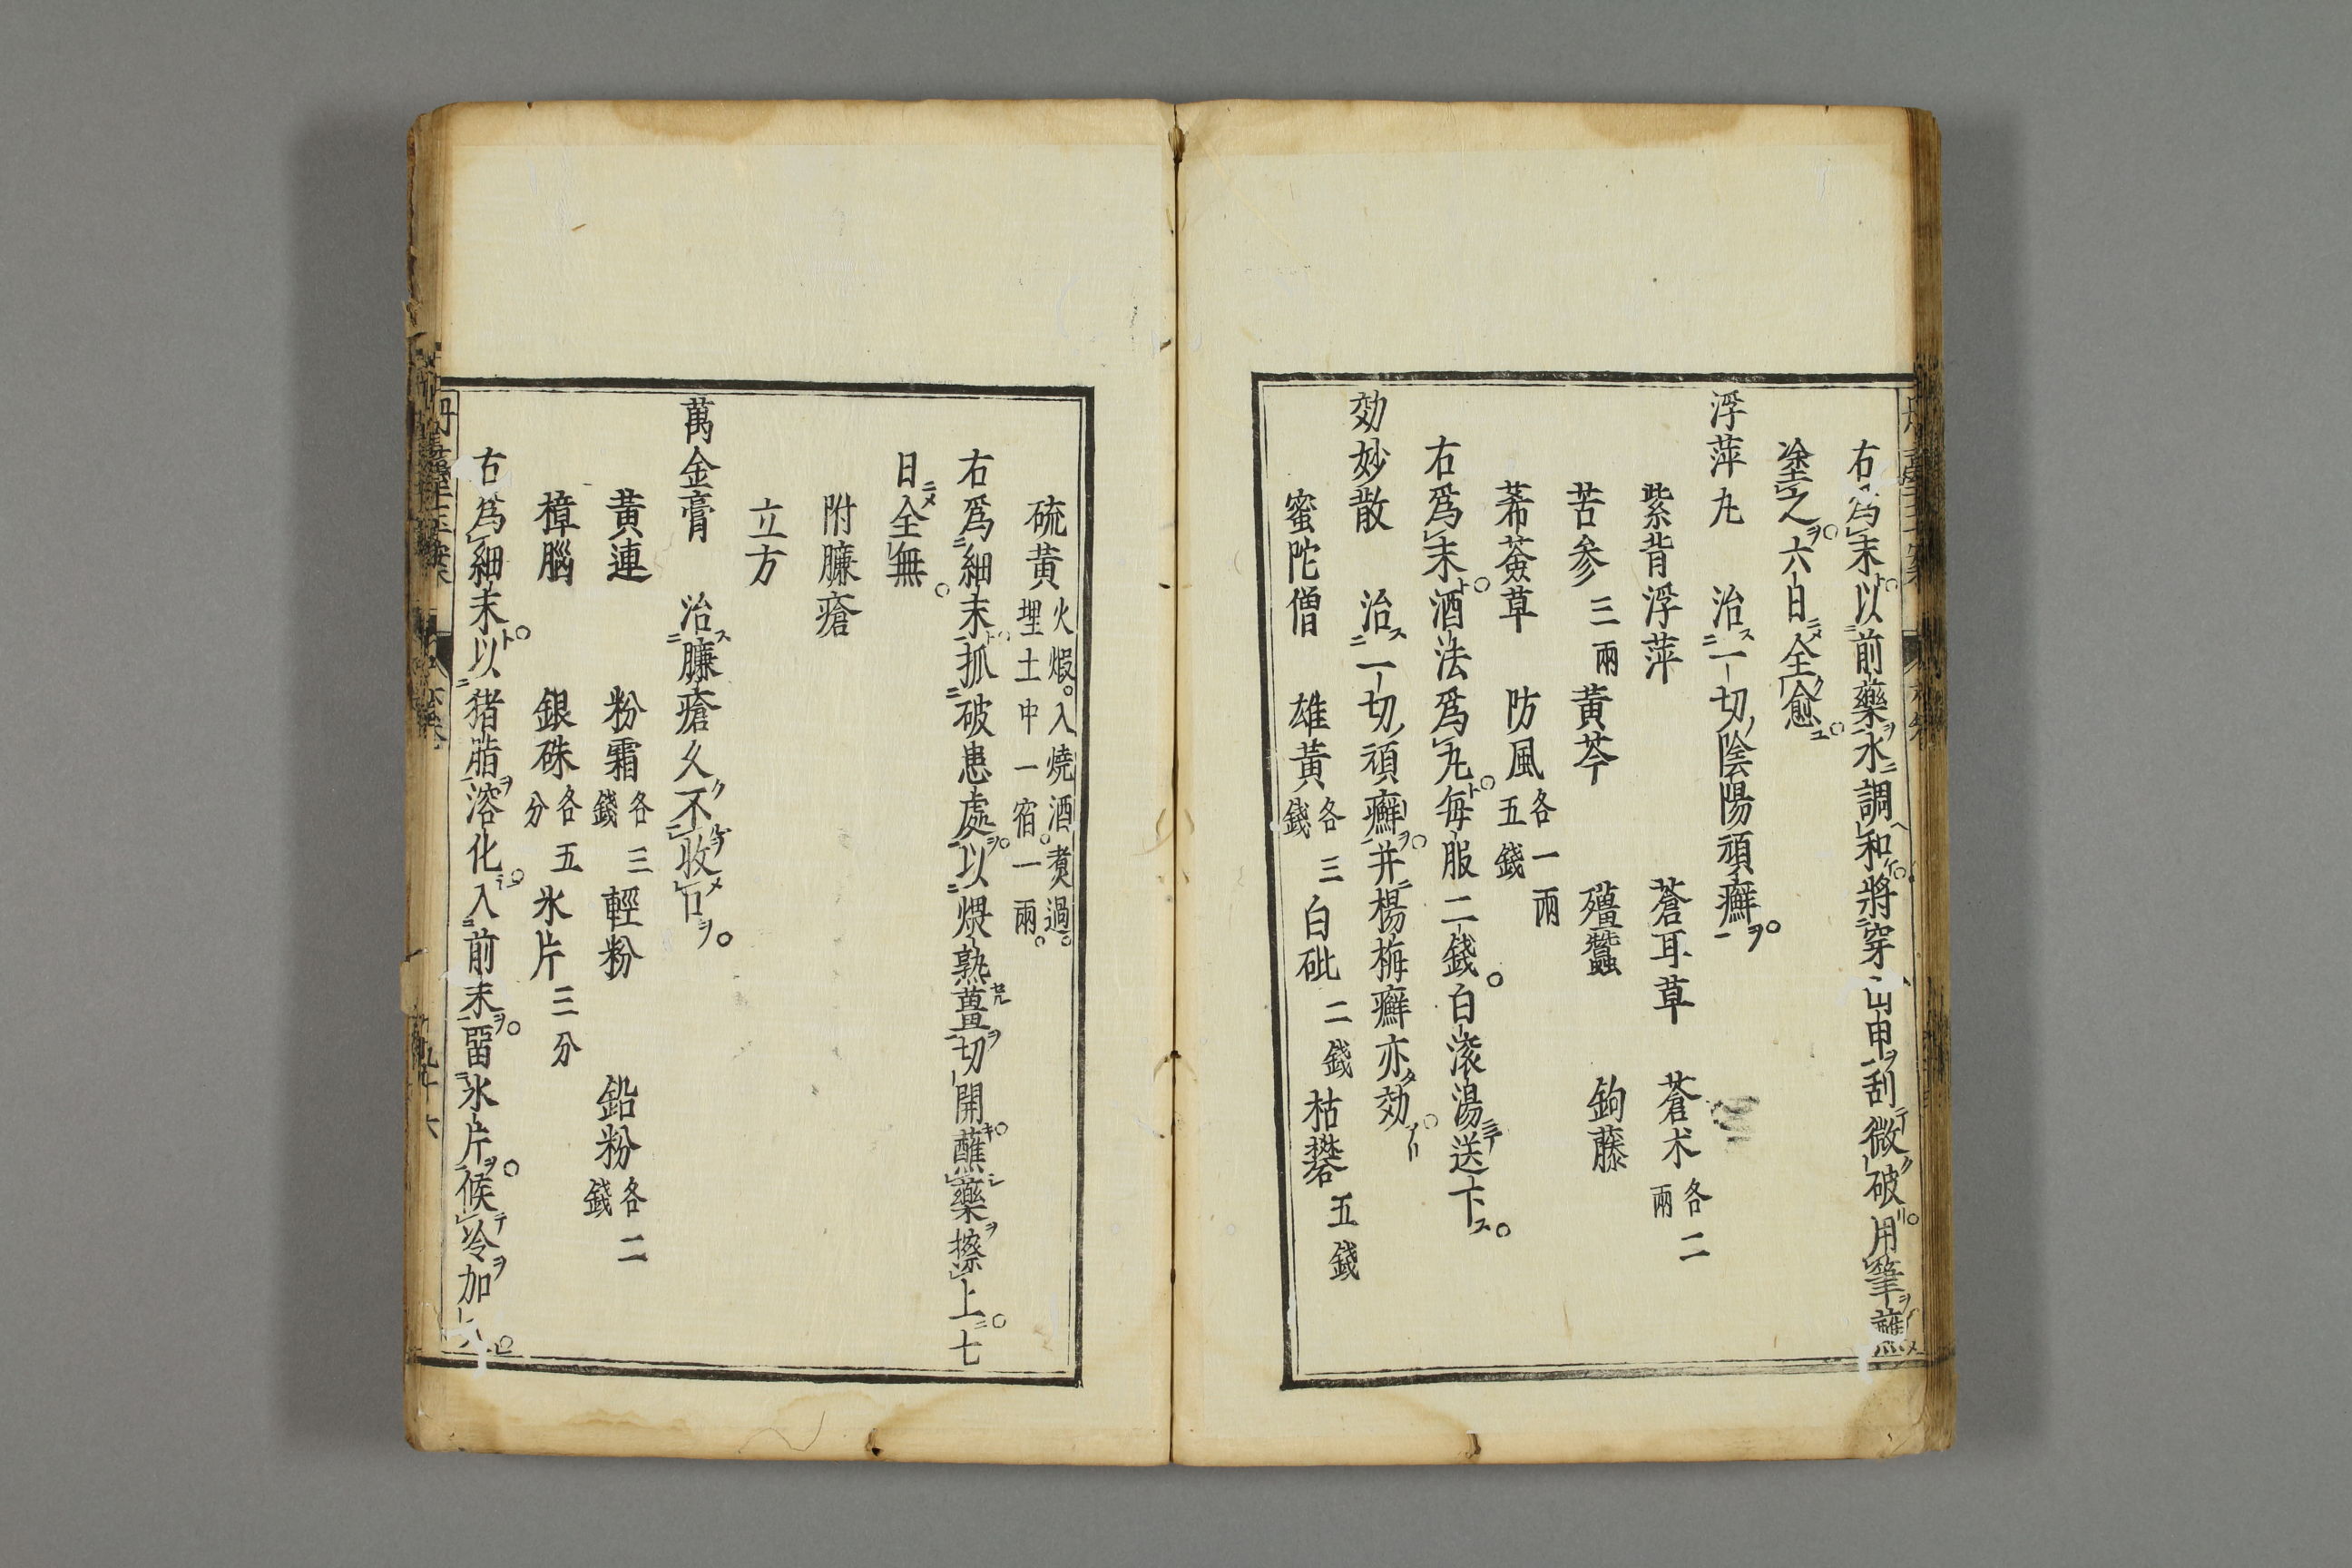 右爲末以前藥水調和將穿山甲刮微破用筆蘸
塗之六日全愈
浮萍丸 治一切陰陽頑癬
紫背浮萍 蒼耳草 蒼朮各二兩
苦參三兩 黃芩 殭蠶 鉤藤
豨薟草 防風各一兩五錢
右爲末酒法爲丸每服二錢白滚湯送下
効妙散 治一切頑癬并楊梅癬亦効
蜜陀僧 雄黃各三錢 白砒二錢 枯礬五錢
硫黃火煆入燒酒煑過埋土中一宿一兩
右爲細末抓破患處以煨熟薑切開蘸藥擦上七
日全無
附臁瘡
立方
萬金膏 治臁瘡久不收口
黃連 粉霜各三錢 輕粉 鉛粉各二錢
樟腦 銀硃各五分 氷片三分
右爲細末以猪脂溶化入前末畱氷片候冷加